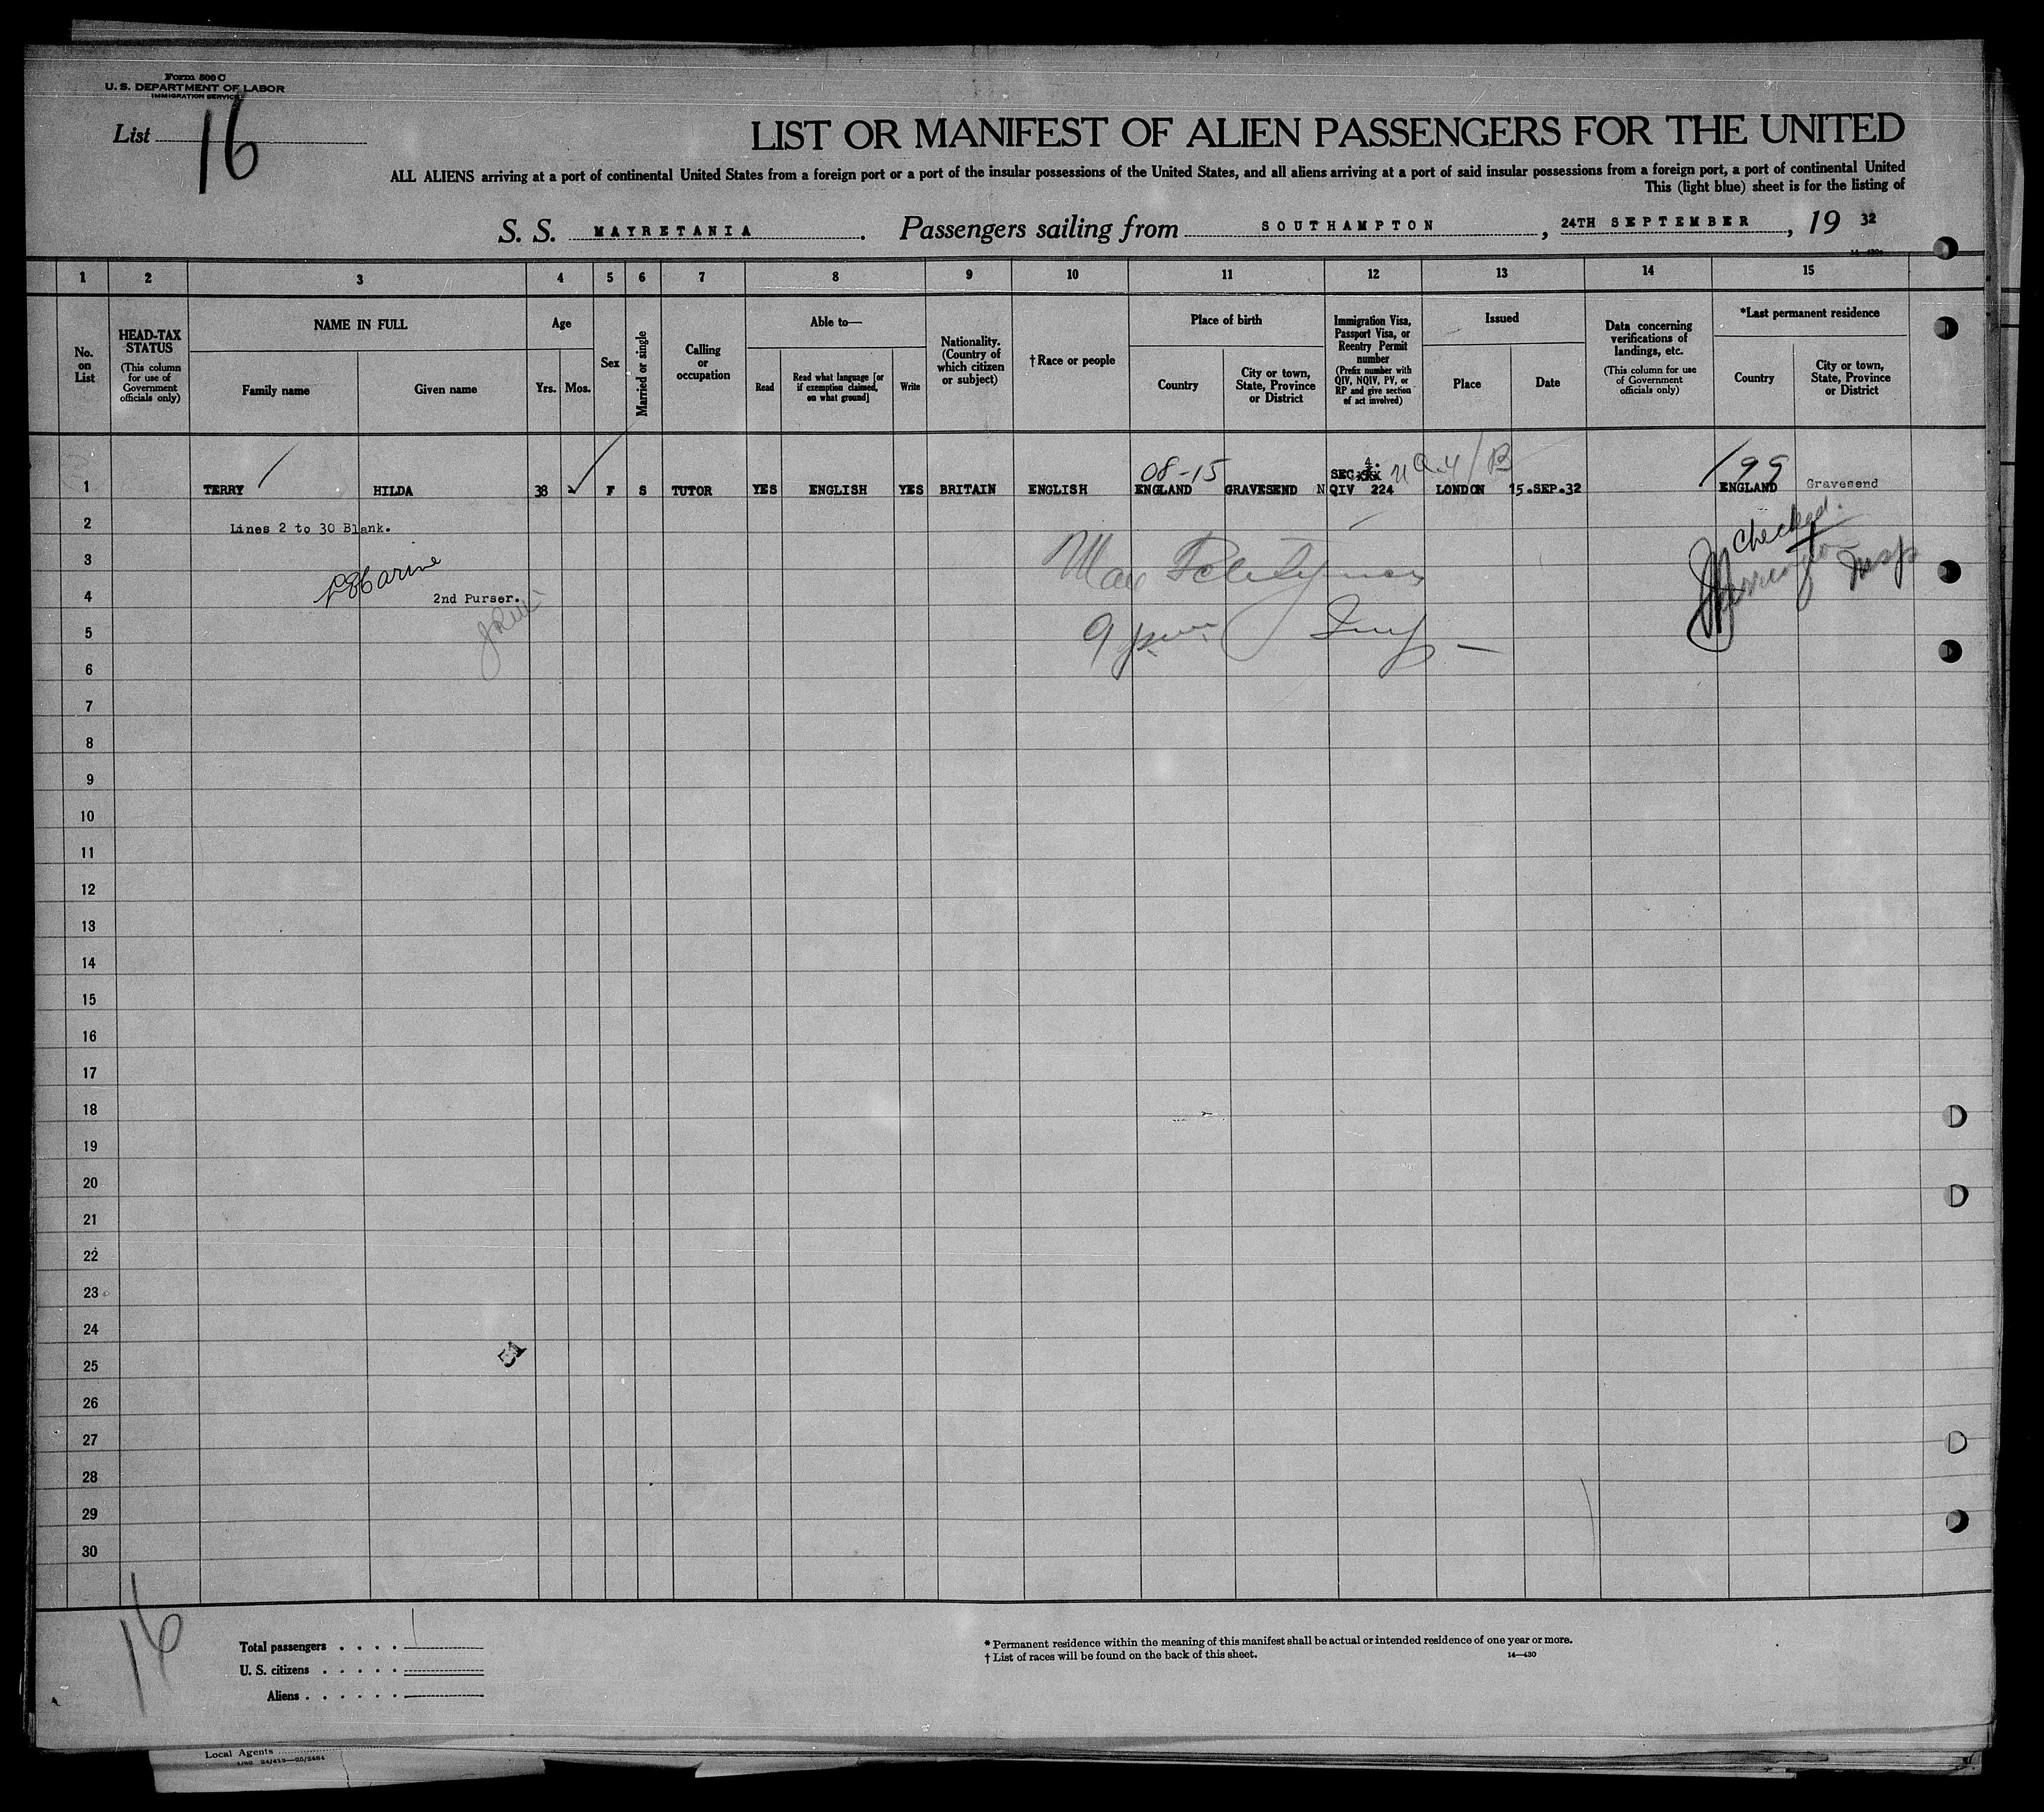 Form 500 C
U. S. DEPARTMENT OF LABOR
IMMIGRATION SERVICE
List 16
LIST OR MANIFEST OF ALIEN PASSENGERS FOR THE UNITED
ALL ALIENS arriving at a port of continental United States from a foreign port or a port of the insular possessions of the United States, and all aliens arriving at a port of said insular possessions from a foreign port, a port of continental United
This (light blue) sheet is for the listing of
S. S. MAYRETANIA. Passengers sailing from SOUTHAMPTON, 24TH SEPTEMBER, 19 32
1 2 3 4 5 6 7 8 9 10 11 12 13 14 15
No. on List
HEAD-TAX STATUS
(This column for use of Government officials only)
NAME IN FULL
Family name
Given name
Age
Yrs. Mos.
Sex
Married or single
Calling or occupation
Able to—
Read
Read what language [or if exemption claimed, on what ground]
Write
Nationality. (Country of which citizen or subject)
† Race or people
Place of birth
Country
City or town, State, Province or District
Immigration Visa, Passport Visa, or Reentry Permit number
(Prefix number with QIV, NQIV, PV, or RP and give section of act involved)
Issued
Place
Date
Data concerning verifications of landings, etc.
(This column for use of Government officials only)
*Last permanent residence
Country
City or town, State, Province or District
08-15
SEC. 4.
199
1 TERRY HILDA 38 F S TUTOR YES ENGLISH YES BRITAIN ENGLISH ENGLAND GRAVESEND NQIV 224 LONDON 15.SEP.32 ENGLAND Gravesend
2 Lines 2 to 30 Blank.
checked.
3
4 2nd Purser.
5
6
7
8
9
10
11
12
13
14
15
16
17
18
19
20
21
22
23
24
25
26
27
28
29
30
16
Total passengers . . . . 1
U. S. citizens . . . . .
Aliens . . . . . .
* Permanent residence within the meaning of this manifest shall be actual or intended residence of one year or more.
† List of races will be found on the back of this sheet.
14—430
Local Agents